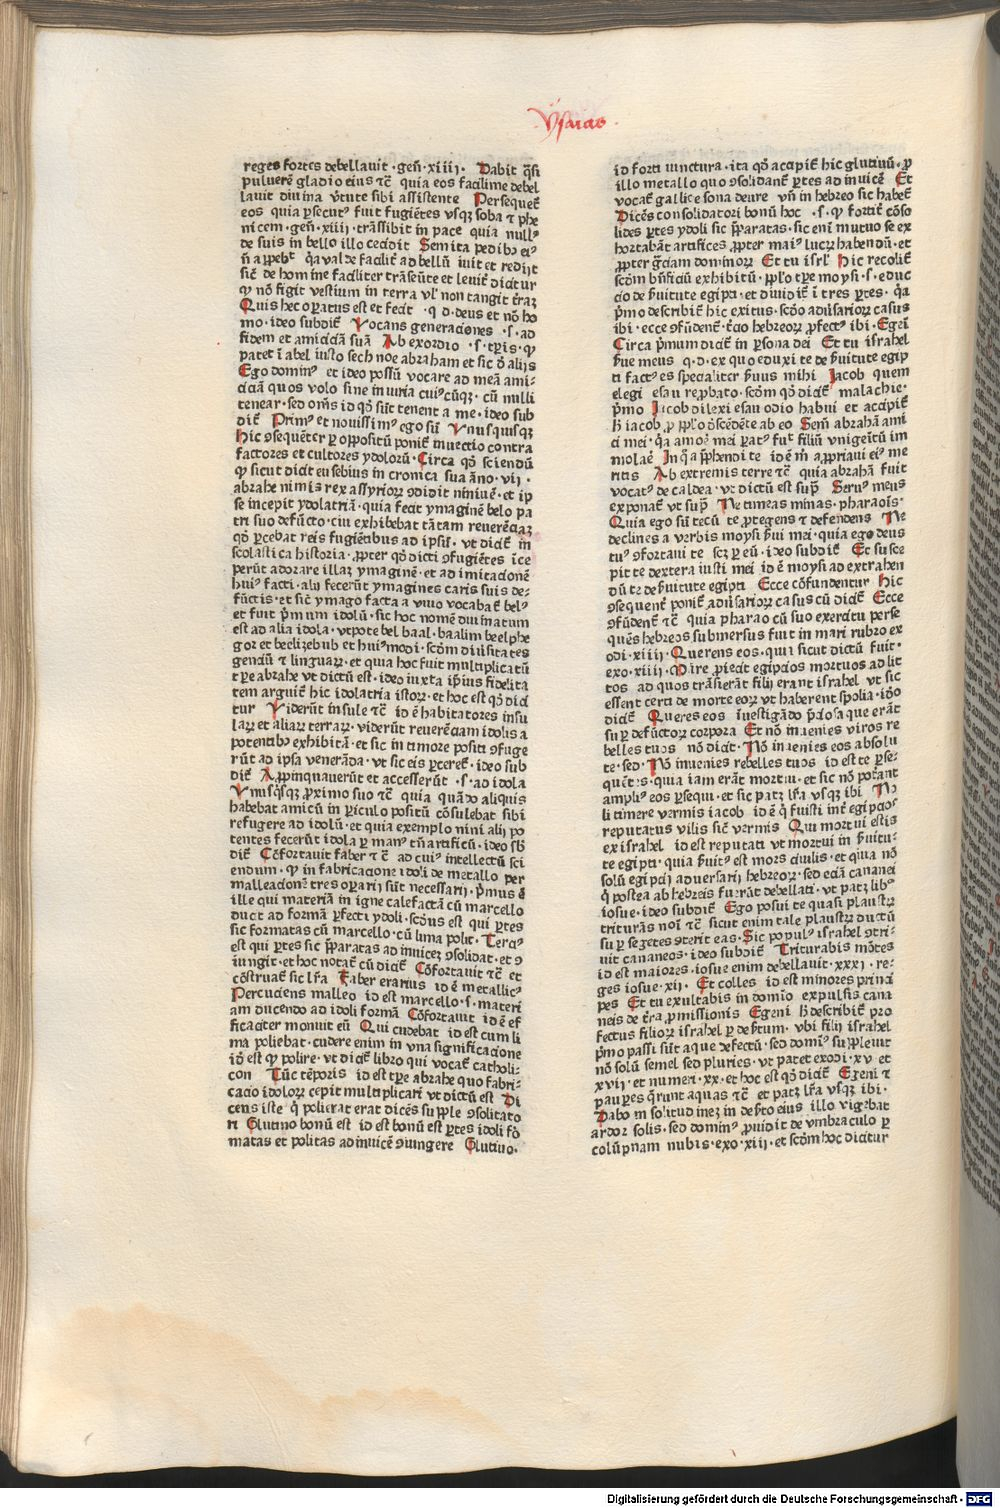 Ysaias
reges fortes debellavit · gen̄ · xiiii · Dabit q̄si
pulverē gladio eius ⁊c̄ quia eos facilime debel
lavit divina v̓tute sibi assistente Persequet̄
eos quia ꝑsecutꝰ fuit fugiētes vsqꝫ soba ⁊ phe
nicem · gen̄ · xiiii · trāssibit in pace quia nullꝰ
de suis in bello illo cecidit Semita pedibꝫ eiꝰ
sic̄ de homine faciliter trāseūte et levit̓ dicitur
ꝙ nō figit vestium in terra vl̓ non tangit t̓rā
Quis hec oꝑatus est et fecit · q · d · deus et nō ho
mo · ideo subdit̄ Vocans generaciones · s · ad
fidem et amiciciā suā Ab exordio · s · tꝑis · ꝙ
patet ī abel iusto seth noe abraham et sic ō aliis
Ego dominꝰ et ideo possū vocare ad meā ami-
ciciā quos volo sine iniuria cuiꝰcūqꝫ · cū nulli
tenear · sed om̄s id qꝫ sūt tenent a me · ideo sub
dit̄ Primꝰ et novissimꝰ ego sū Vnusquisqꝫ
Hic ꝯsequēter ꝑ oppositū ponit̄ invectio contra
factores et cultores ydolorū · Circa qꝫ sciendū
ꝙ sicut dicit eusebius in cronica sua āno · vii ·
abrahe nimis rex assyrioꝝ ꝯdidit ninivē · et ip
se incepit ydolatriā · quia fecit ymaginē belo pa
tri suo defūcto · cui exhibebat tātam reverēciaꝫ
qꝫ ꝑcebat reis fugiētibus ad ipsū · vt dicit̄ in
scolastica historia · ꝓpter qꝫ dicti ꝯfugiētes īce
perūt adorare illaꝫ ymaginē · et ad imitacionē
huiꝰ facti · alii fecerūt ymagines caris suis de-
fūctis · et sic ymago facta a viro vocabat̄ belꝰ
et fuit p̄mum idolū · sic hoc nomē divinatum
est ad alia idola · vtpote bel baal · baalim beelphe
gor et beelzebub et huiꝰmodi · scd̄m diu̓sitates
genciū ⁊ linguaꝝ · et quia hoc fuit multiplicatū
tꝑe abrahe vt dictū est · ideo iuxta ip̄ius fidelita
tem arguit̄ hic idolatria istoꝝ · et hoc est qꝫ dici
tur Viderūt insule ⁊c̄ id ē habitatores insu
laꝝ et aliaꝝ terraꝝ · viderūt reverēciam idolis a
potentibꝫ exhibitā · et sic in timore positi ꝯfuge
rūt ad ipsa venerāda · vt sic eis ꝑceret̄ · ideo sub
dit̄ Appinquaverūt et accesserūt · s · ad idola
Vnusqꝫsqꝫ ꝓximo suo ⁊c̄ quia quādo aliquis
habebat amicū in ꝑiculo positū cōsulebat sibi
refugere ad idolū · et quia exemplo nini alii po
tentes fecerūt idola ꝑ manꝰ tn̄ artificū · ideo sb̄
dit̄ Cōfortavit faber ⁊c̄ ad cuiꝰ intellectū sci
endum · ꝙ in fabricacione idoli de metallo per
malleacionē tres oꝑarii sūt necessarii · p̄mus ē
ille qui materiā in igne calefactā cū marcello
ducit ad formā ꝑfecti ydoli · scd̄us est qui ꝑtes
sic formatas cū marcello · cū lima polit · Terciꝰ
est qui ꝑtes sic p̄paratas ad invicez ꝯsolidat · et ꝯ
iungit · et hoc notat̄ cū dicit̄ Cōfortavit ⁊c̄ et
cōstruat̄ sic lr̄a Faber erarius id ē metallicꝰ
Percuciens malleo id est marcello · s · materi
am ducendo ad idoli formā Cōfortavit id ē ef
ficaciter monuit eū Qui cudebat id est cum li
ma poliebat · cudere enim in vna significacione
id̄ est ꝙ polire · vt dicit̄ libro qui vocat̄ catholi-
con Tūc tēporis id est tꝑe abrahe quo fabri-
cacio idoloꝝ cepit multiplicari vt dictū est Di
cens iste q̄ polierat erat dicēs supple ꝯsolidato
ri Glutino bonū est id est bonū est ꝑtes idoli fō
matas et politas ad invicē ꝯiungere Glutino ·
id forti iunctura · ita qꝫ accipit̄ hic glutinū · ꝓ
illo metallo quo ꝯsolidant̄ ꝑtes ad invicē Et
vocat̄ gallice sona deure vn̄ in hebreo sic habet̄
Dicēs consolidatori bonū hoc · s · ꝙ fortit̓ cōso
lides ꝑtes ydoli sic p̄paratas · sic eni mutuo se ex
hortabāt artifices ꝓpter maiꝰ lucꝝ habendū · et
ꝓpter gr̄ciam dominoꝝ Et tu isrl̓ Hic recolit̄
scd̄m b̄nficiū exhibitū · pꝑl̓o tꝑe moysi · s · educ
cio de s̓vitute egipti · et dividit̄ ī tres ꝑtes · q̄a
p̄mo describit̄ hic exitus · scd̄o adu̓sarioꝝ casus
ibi · ecce ꝯfūdent̄ · t̓cio hebreoꝝ ꝓfectꝰ ibi · Egeī
Circa p̄mum dicit̄ in ꝑsona dei Et tu israhel
s̓ue meus q · d · ex quo eduxi te de s̓vitute egip
ti factꝰ es specialiter s̓uus mihi Jacob quem
elegi esau reꝓbato · scd̄m qꝫ dicit̄ malachie ·
p̄mo Jacob dilexi esau odio habui et accipit̄
h̓ iacob ꝓ ppl̓o q̄ descēdēte ab eo Semē abrahā ami
ci mei · q̄a amoꝛe mei ꝑatꝰ fuit filiū vnigeītū im
molare In q̄ apphendi te id ē m̓ appriavi eiꝰ me
ritis Ab extremis terre ⁊c̄ quia abrahā fuit
vocatꝰ de caldea · vt dictū est supra Servꝰ meus
exponat̄ vt supra Ne timeas minas · pharaoīs ·
Quia ego sū tecū te ꝓtegens ⁊ defendens Ne
declines a verbis moysi s̓ui mei · quia ego deus
tuꝰ ꝯfortavi te scꝫ ꝑ eū · ideo subdit̄ Et susce
pit te dextera iusti mei id ē moysi ad extrahen
dū te de s̓vitute egipti Ecce cōfundentur Hic
ꝯsequent̓ ponit̄ adu̓sarioꝝ casus cū dicit̄ Ecce
ꝯfūdent̄ ⁊c̄ quia pharao cū suo exercitu ꝑse
quēs hebreos submersus fuit in mari rubro ex
odi · xiiii · Querens eos · quia sicut dictū fuit ·
exo · xiiii · Mare ꝓiecit egipcios mortuos ad lit
tos ad quos trāsierāt filii erant israhel vt sic
essent certi de morte eoꝝ vt haberent spolia · idō
dicit̄ Queres eos īvestigādo p̄ciosa que erāt
suꝑ defūctoꝝ corpora Et nō invenies viros re
belles tuos nō dicit · Nō invenies eos absolu
te · sed · Nō invenies rebelles tuos id est te ꝑse-
quētes · quia iam erāt mortui · et sic nō poterāt
ampliꝰ eos ꝑsequi · et sic patꝫ lr̄a vsqꝫ ibi No
li timere vermis iacob id ē q̄ fuisti int̓ egipcios
reputatus vilis sic̄ v̓mis Qui mortui estis
ex israhel id est reputati vt mortui in s̓vitu-
te egipti · quia s̓vitꝰ est mors civilis · et quia nō
solū egipcii adversarii hebreoꝝ · sed eciā cananei
q̄ postea ab hebreis fuerūt debellati · vt patꝫ libꝰ
iosue · ideo subdit̄ Ego posui te quasi plaustꝝ
triturās noī ⁊c̄ sicut enim tale plaustꝝ ductū
suꝑ segetes ꝯterit eas · Sic populꝰ israhel ꝯtri-
vit cananeos · ideo subdit̄ Triturabis mōtes
id est maiores · iosue enim debellavit · xxxi · re-
ges iosue · xii · Et colles id est minores princi
pes Et tu exultabis in domīo expulsis cana
neis de t̓ra ꝓmissionis Egeni h̓ describit̄ pro
fectus filioꝝ israhel ꝑ de p̄tum · vbi filii israhel
p̄mo passi sūt aque defectū · sed domīꝰ supplevit
nō solū semel sed pluries · vt patet exodi · xv et
xvii · et numeri · xx · et hoc est qꝫ dicit̄ Egeni ⁊
pauꝑes q̄runt aquas ⁊c̄ et patꝫ lr̄a vsqꝫ ibi ·
Dabo in solitudinez in dep̄to eius illo vigebat
ardoꝛ solis · sed dominꝰ ꝓuidit de vmbraculo ꝑ
colūpnam nubis · exo · xiii · et scd̄m hoc dicitur
Digitalisierung gefördert durch die Deutsche Forschungsgemeinschaft - DFG